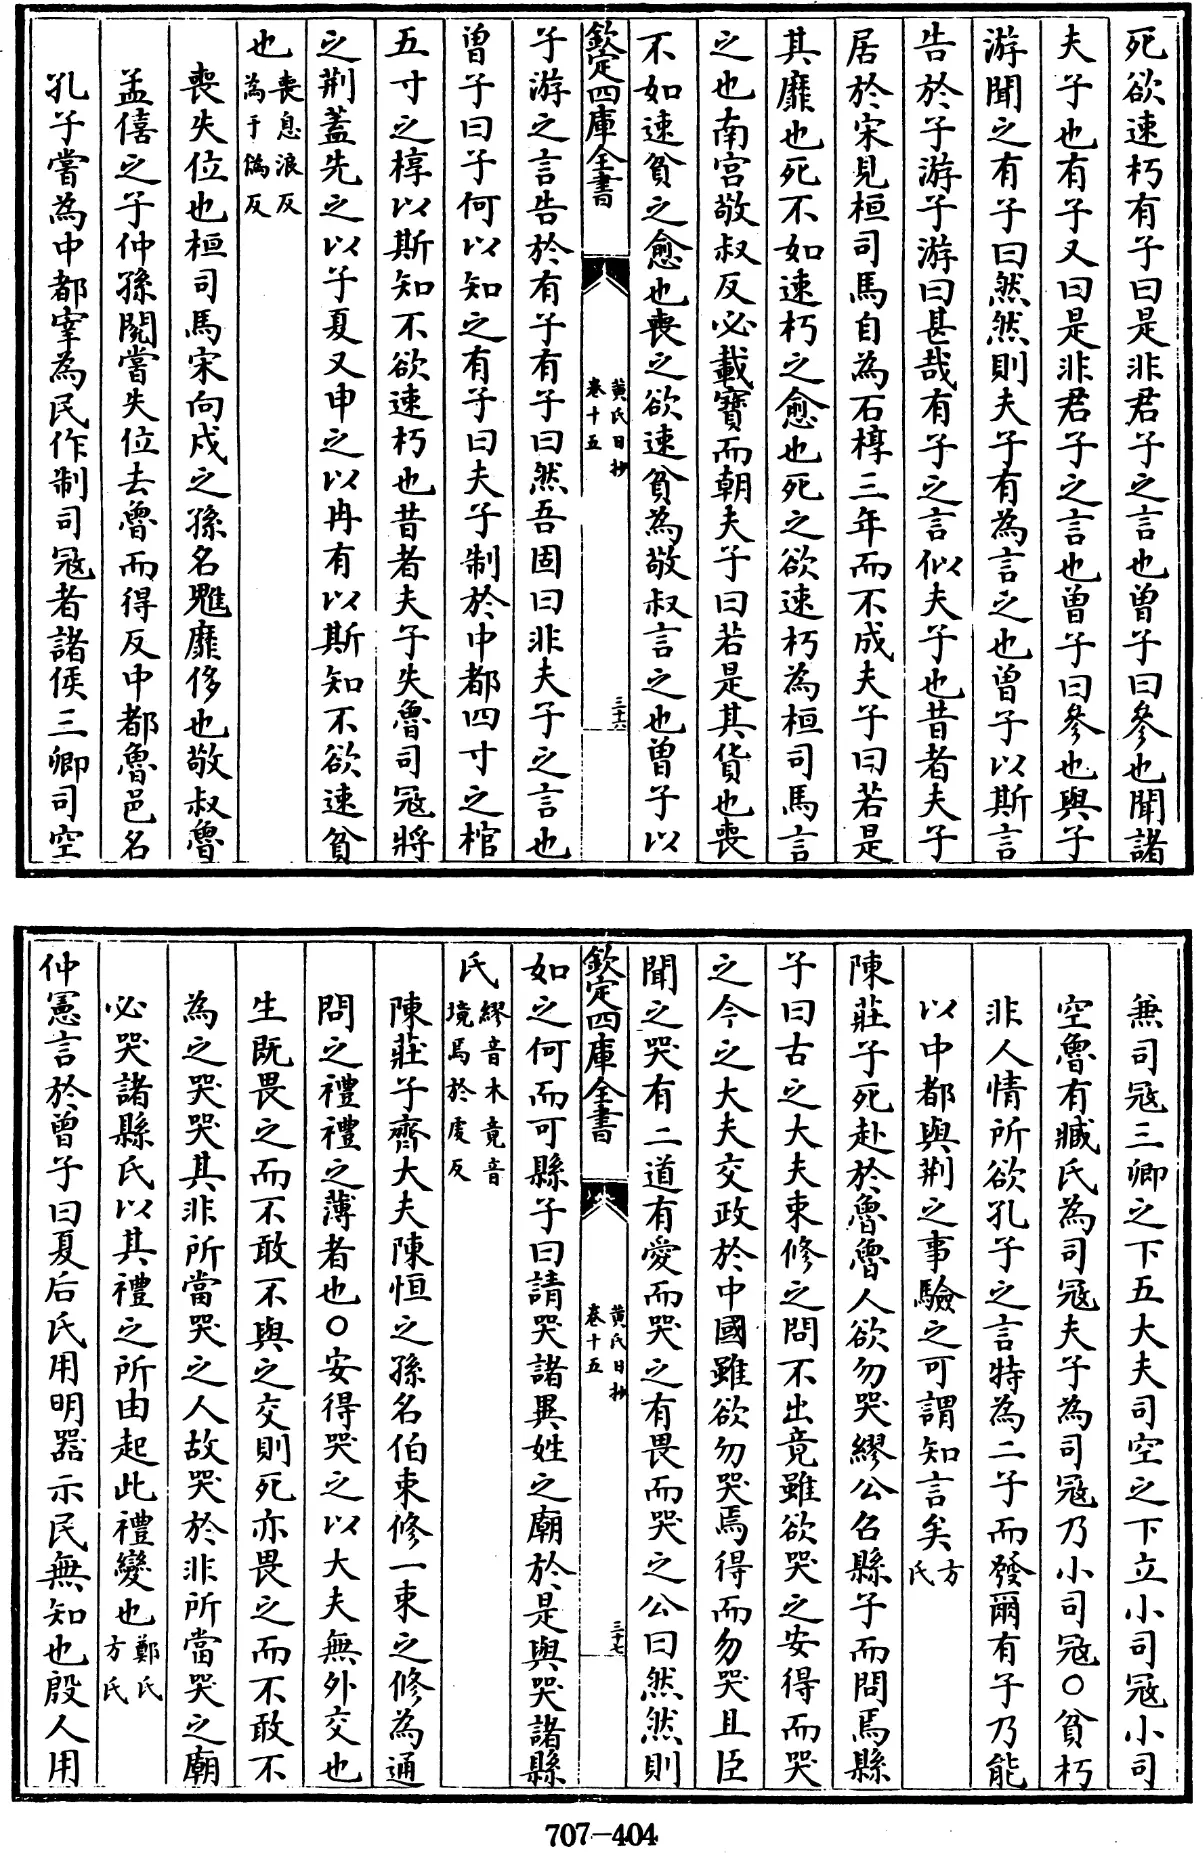 死欲速朽有子曰是非君子之言也曾子曰參也聞諸
夫子也有子又曰是非君子之言也曾子曰參也與子
游聞之有子曰然然則夫子有為言之也曾子以斯言
告於子游子游曰甚哉有子之言似夫子也昔者夫子
居於宋見桓司馬自為石椁三年而不成夫子曰若是
其靡也死不如速朽之愈也死之欲速朽為桓司馬言
之也南宫敬叔反必載寶而朝夫子曰若是其貨也喪
不如速貧之愈也喪之欲速貧為敬叔言之也曾子以
欽定四庫全書
黄氏日抄
卷十五
三十六
子游之言告於有子有子曰然吾固曰非夫子之言也
曾子曰子何以知之有子曰夫子制於中都四寸之棺
五寸之椁以斯知不欲速朽也昔者夫子失魯司冦將
之荆蓋先之以子夏又申之以冉有以斯知不欲速貧
也喪息浪反
為于偽反
喪失位也桓司馬宋向戍之孫名魋靡侈也敬叔魯
孟僖之子仲孫閱嘗失位去魯而得反中都魯邑名
孔子嘗為中都宰為民作制司冦者諸侯三卿司空
兼司冦三卿之下五大夫司空之下立小司冦小司
空魯有臧氏為司冦夫子為司冦乃小司冦○貧朽
非人情所欲孔子之言特為二子而發爾有子乃能
以中都與荆之事驗之可謂知言矣方
氏
陳莊子死赴於魯魯人欲勿哭繆公召縣子而問焉縣
子曰古之大夫束修之問不出竟雖欲哭之安得而哭
之今之大夫交政於中國雖欲勿哭焉得而勿哭且臣
聞之哭有二道有愛而哭之有畏而哭之公曰然然則
欽定四庫全書
黄氏日抄
卷十五
三十七
如之何而可縣子曰請哭諸異姓之廟於是與哭諸縣
氏繆音木竟音
境焉於䖍反
陳莊子齊大夫陳恒之孫名伯束修一束之修為通
問之禮禮之薄者也○安得哭之以大夫無外交也
生既畏之而不敢不與之交則死亦畏之而不敢不
為之哭哭其非所當哭之人故哭於非所當哭之廟
必哭諸縣氏以其禮之所由起此禮變也鄭氏
方氏
仲憲言於曾子曰夏后氏用明器示民無知也殷人用
707-404